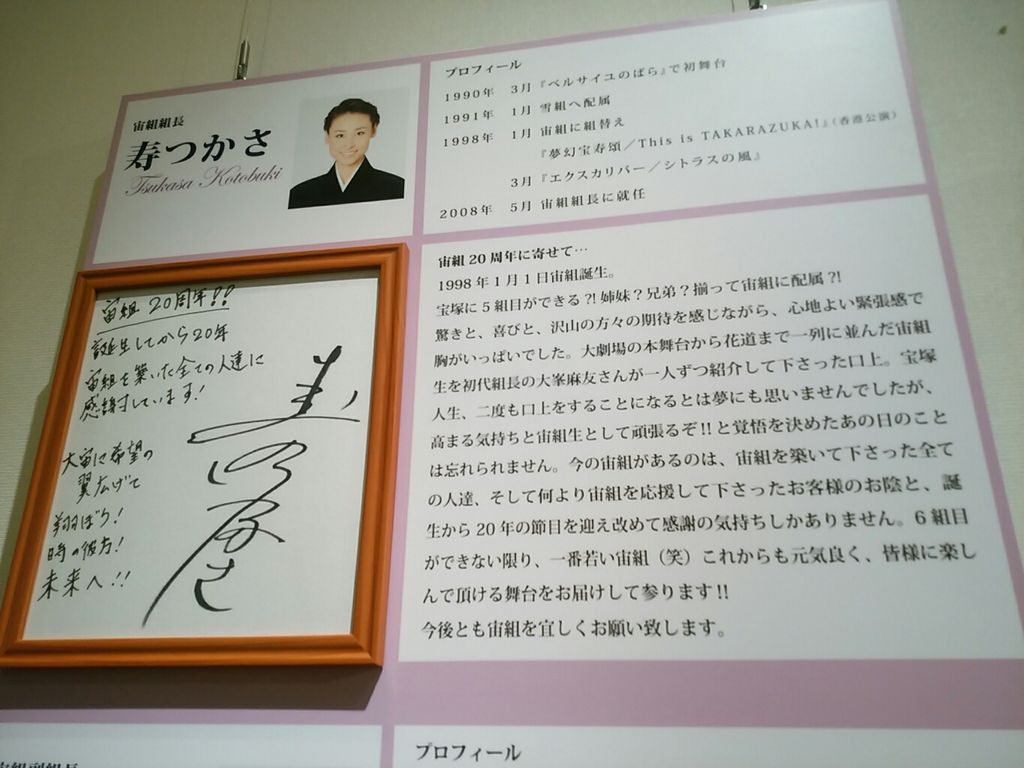 宙組組長
寿つかさ
Tsukasa Kotobuki
プロフィール
1990年 3月『ベルサイユのばら』で初舞台
1991年 1月 雪組へ配属
1998年 1月 宙組に組替え
『夢幻宝寿頌／This is TAKARAZUKA!』(香港公演)
3月『エクスカリバー／シトラスの風』
2008年 5月 宙組組長に就任
宙組20周年!!
誕生してから20年
宙組を築いた全ての人達に
感謝しています!
大宙に希望の
翼広げて
翔ぼう!
時の彼方!
未来へ!!
宙組20周年に寄せて…
1998年1月1日宙組誕生。
宝塚に5組目ができる?!姉妹?兄弟?揃って宙組に配属?!
驚きと、喜びと、沢山の方々の期待を感じながら、心地よい緊張感で
胸がいっぱいでした。大劇場の本舞台から花道まで一列に並んだ宙組
生を初代組長の大峯麻友さんが一人ずつ紹介して下さった口上。宝塚
人生、二度も口上をすることになるとは夢にも思いませんでしたが、
高まる気持ちと宙組生として頑張るぞ!!と覚悟を決めたあの日のこと
は忘れられません。今の宙組があるのは、宙組を築いて下さった全て
の人達、そして何より宙組を応援して下さったお客様のお陰と、誕
生から20年の節目を迎え改めて感謝の気持ちしかありません。6組目
ができない限り、一番若い宙組（笑）これからも元気良く、皆様に楽し
んで頂ける舞台をお届けして参ります!!
今後とも宙組を宜しくお願い致します。
宙組副組長
プロフィール